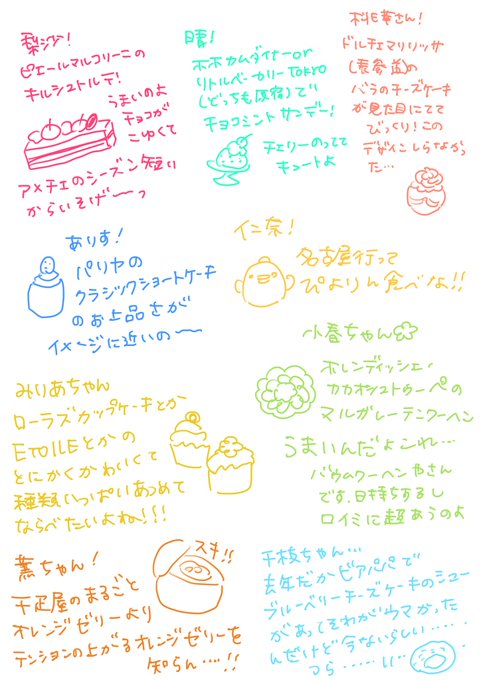 梨沙!
ピエールマルコリーニの
キルシュトルテ!
うまいのよ
チョコが
こゆくて
アメチェのシーズン短い
からいそげ〜〜っ
晴!
ホホカムダイナーor
リトルベーカリーTOKYO
(どっちも原宿)で
チョコミントサンデー!
チェリーのってて
キュートよ
ドルチェマリリッサ
(表参道)の
バラのチーズケーキ
が見た目にてて
びっくり!この
デザインしらなかっ
た…
ありす!
パリヤの
クラシックショートケーキ
のお上品さが
イメージに近いの〜〜
仁奈!
名古屋行って
ぴよりん食べな!!
小春ちゃん
ホレンディッシェ・
カカオシュトゥーベの
マルガレーテンクーヘン
うまいんだよこれ…
バウムクーヘンやさん
です、日持ちするし
ロイミに超あうのよ
みりあちゃん
ローラズカップケーキとか
ETOILEとかの
とにかくかわいくて
種類いっぱいあつめて
ならべたいよね!!!
薫ちゃん!
スキ!!
千疋屋のまるごと
オレンジゼリーより
テンションの上がるオレンジゼリーを
知らん……!!
千枝ちゃん…
去年だかビアパパで
ブルーベリーチーズケーキのシュー
があってそれがウマかった
んだけど今ないらしい……
つら……